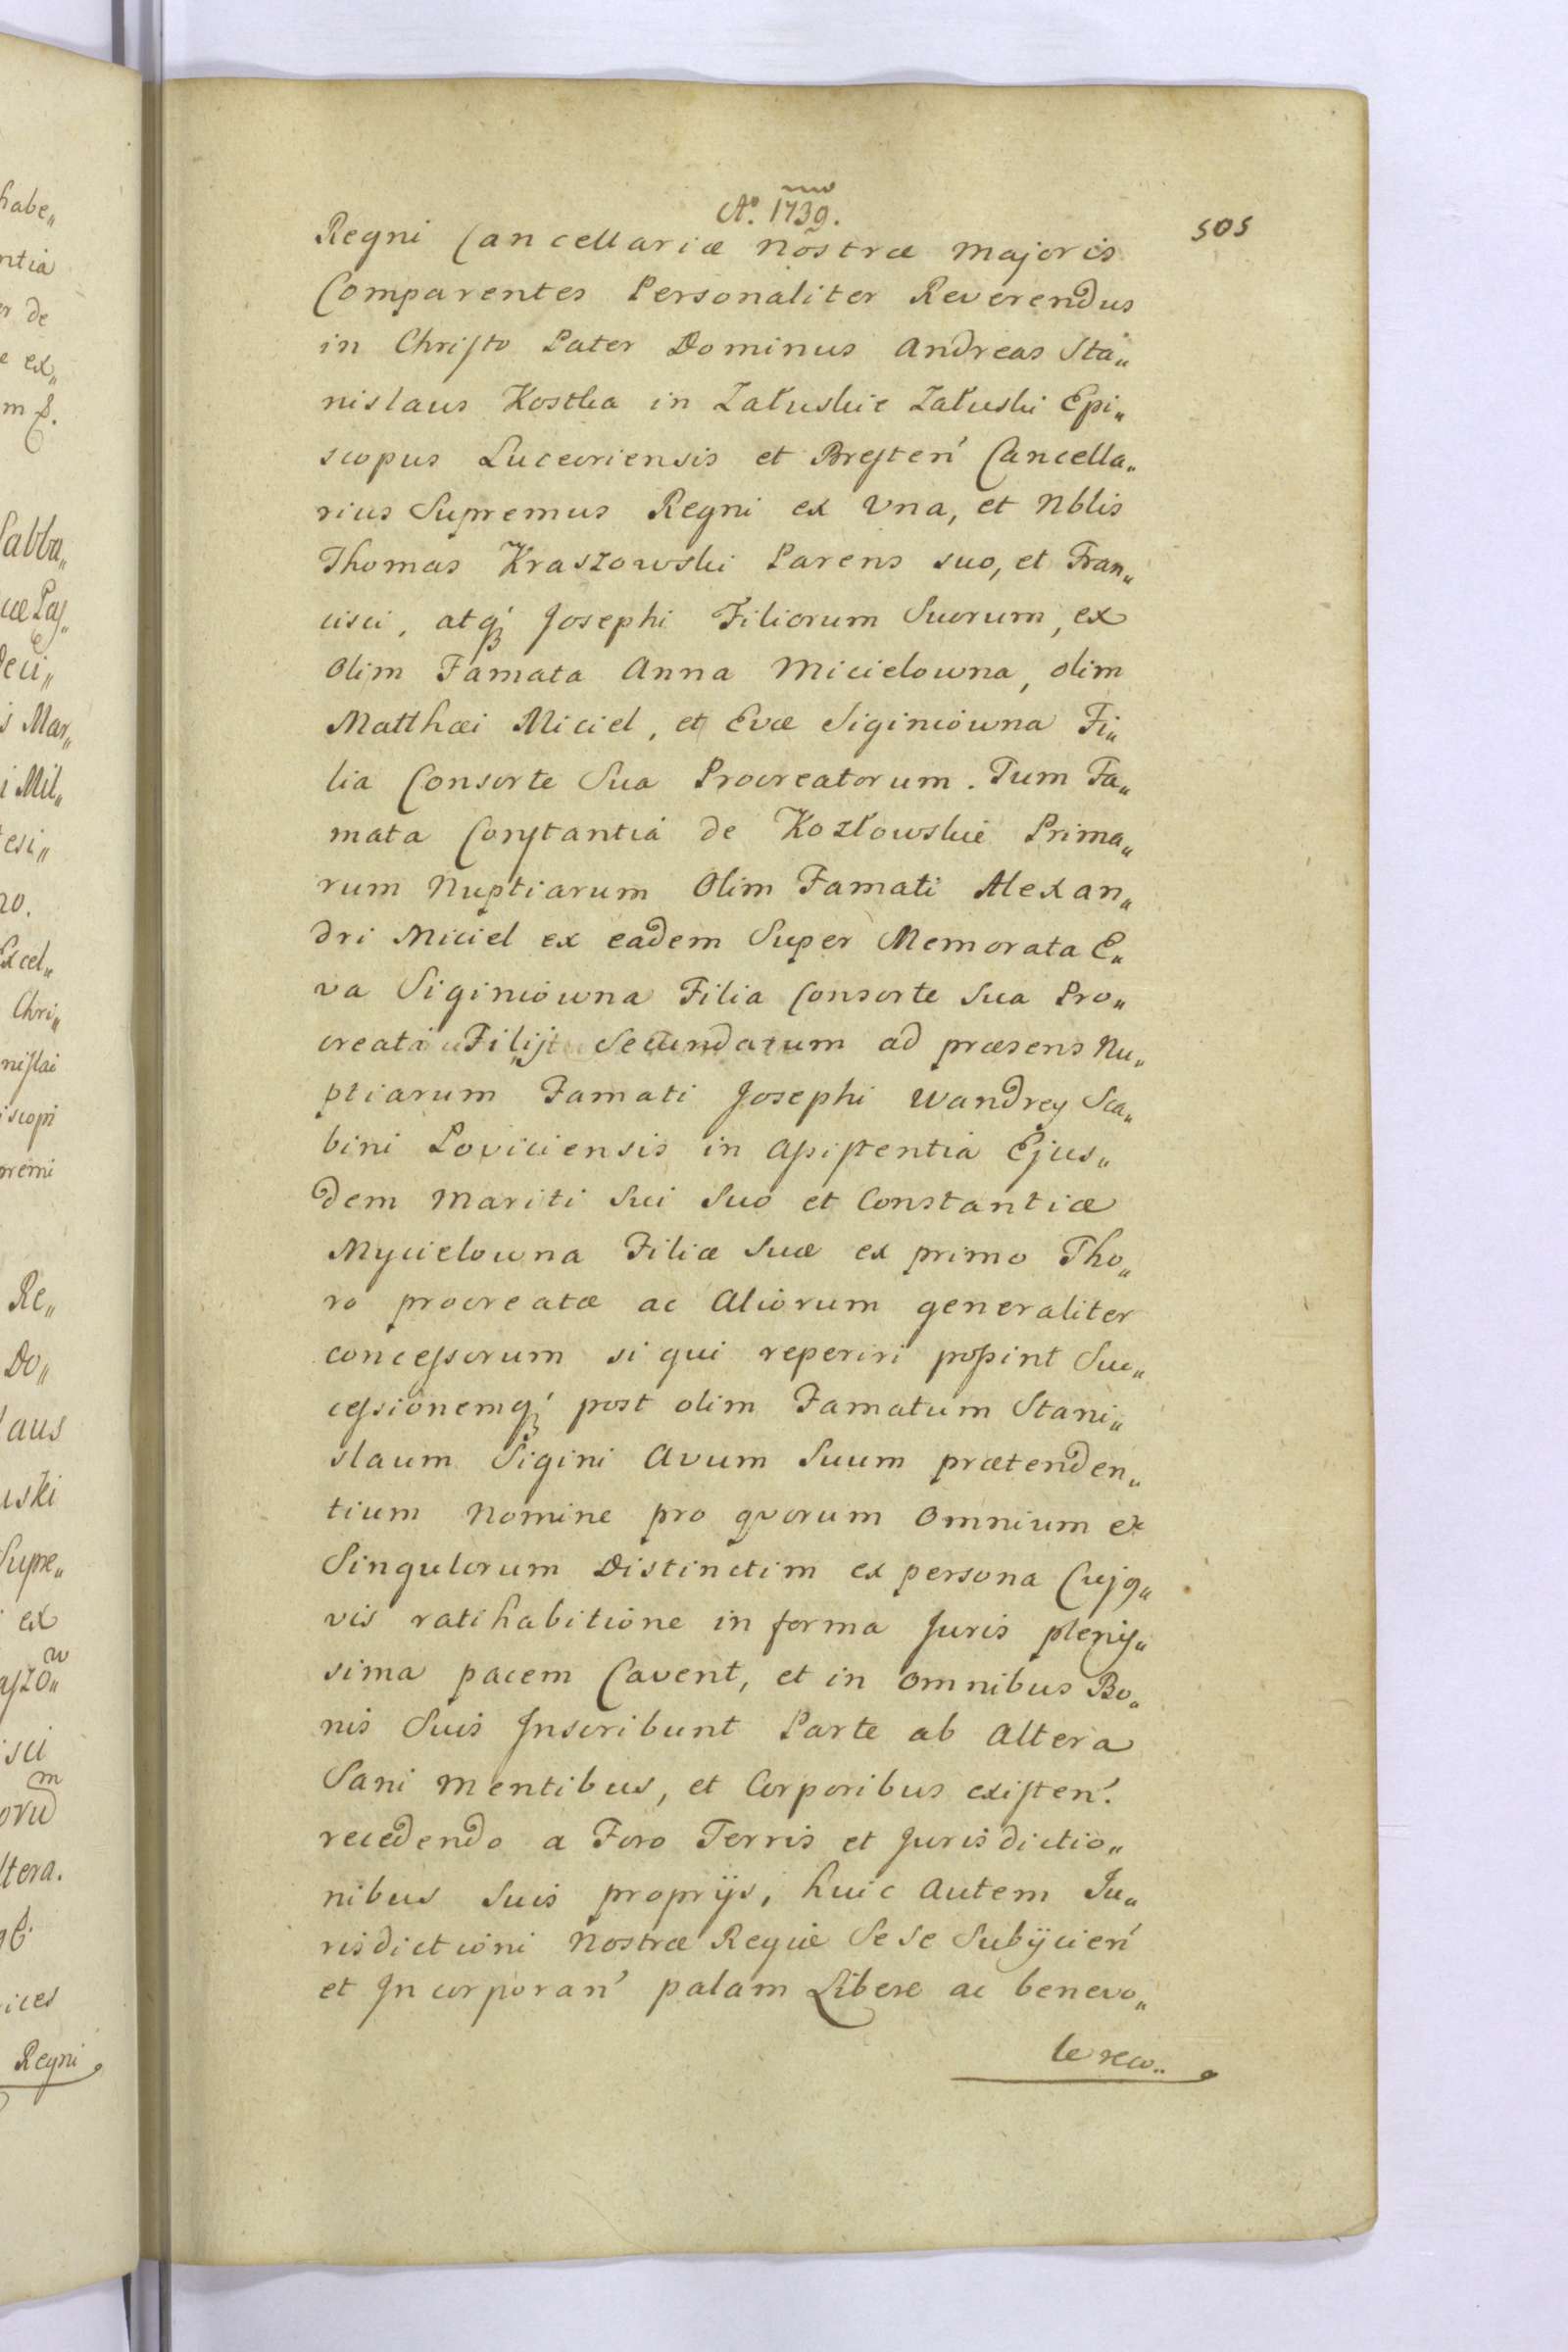 Aº. 1739.
mo
505
Regni Cancellariæ Nostræ Majoris
Comparentes Personaliter Reverendus
in Christo Pater Dominus Andreas Sta„
nislaus Kostka in Załuskie Załuski Epi„
scopus Luceoriensis et Bresten' Cancella„
rius Supremus Regni ex Vna, et Nblis
Thomas Kraszowski Parens suo, et Fran„
cisci, atq' Josephi Filiorum Suorum, ex
Olim Famata Anna Micielowna, olim
Matthæi Miciel, et Evæ Siginiowna Fi„
lia Consorte Sua Procreatorum. Tum Fa„
mata Constantia de Kozłowskie Prima„
rum Nuptiarum Olim Famati Alexan„
dri Miciel ex eadem Super Memorata E„
va Siginiowna Filia Consorte Sua Pro„
creati Filij Secundarum ad præsens Nu„
ptiarum Famati Josephi Wandrey Sca„
bini Loviciensis in Assistentia Ejus„
dem Mariti Sui Suo et Constantiæ
Mycielowna Filiæ Suæ ex primo Tho„
ro procreatæ ac Aliorum generaliter
concessorum si qui reperiri possint Suc„
cessionemq' post olim Famatum Stani„
slaum Sigini Avum Suum prætenden„
tium Nomine pro quorum Omnium et
Singulorum Distinctim ex persona Cujq„
vis ratihabitione in forma Juris plenis„
sima pacem Cavent, et in Omnibus Bo„
nis Suis Inscribunt Parte ab Altera
Sani Mentibus, et Corporibus existen'.
recedendo a Foro Terris et Jurisdictio„
nibus Suis proprijs, huic Autem Ju„
risdictioni Nostræ Regiæ Se Se Subijcien'
et Incorporan' palam Libere ac benevo„
le reco„
habe„
ntia
er de
e ex„
Sabba„
deci„
s Mar„
i Mil„
tesi„
no.
Excel„
Chri„
nislai
iscopi
premi
Re„
Do„
laus
uski
Supre„
ex
w
aszo„
isci
m
oru
ltera.
ices
Regni